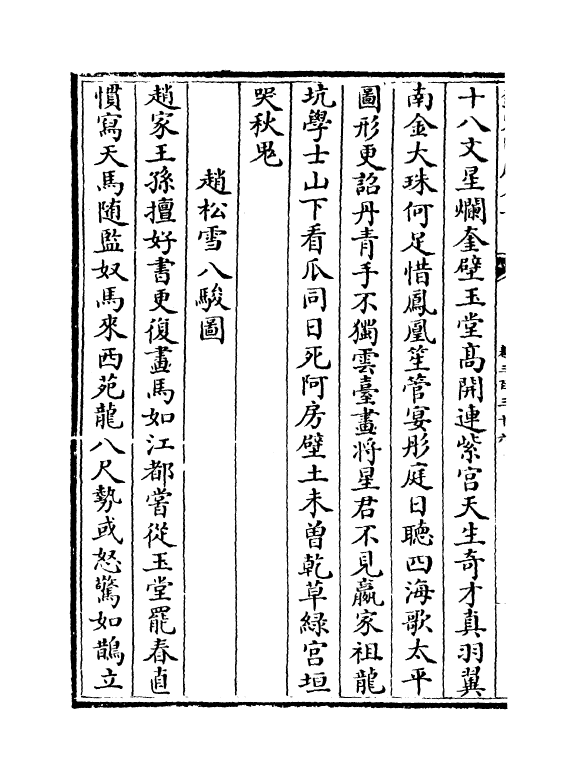 十八文星爛奎壁玉堂髙開連紫宫天生奇才真羽翼
南金大珠何足惜鳳凰笙管宴彤庭日聽四海歌太平
圖形更詔丹青手不獨雲臺畫將星君不見嬴家祖龍
坑學士山下看瓜同日死阿房壁土未曽乾草緑宫垣
哭秋鬼
趙松雪八駿圖
趙家王孫擅好書更復畫馬如江都嘗從玉堂罷春直
慣寫天馬随監奴馬來西苑龍八尺勢或怒驚如鵲立